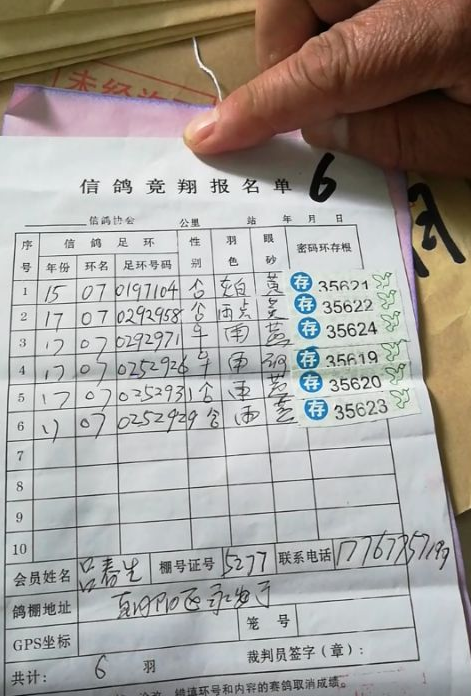 未经
信鸽竞翔报名单 6
信鸽协会 公里 站 年 月 日
序号 信鸽足环 性别 羽色 眼砂 密码环存根
年份 环名 足环号码
1 15 07 0197104 白 黄 存 35621
2 17 07 0292958 雨点 存 35622
3 17 07 0292971 雨 黄 存 35624
4 17 07 0252926 雨 存 35619
5 17 07 0252931 雨 黄 存 35620
6 17 07 0252929 雨 黄 存 35623
7
8
9
10
会员姓名 吕春生 棚号证号 5277 联系电话
鸽棚地址
GPS坐标 笼号
共计: 6 羽 裁判员签字(章):
错填环号和内容的赛鸽取消成绩。